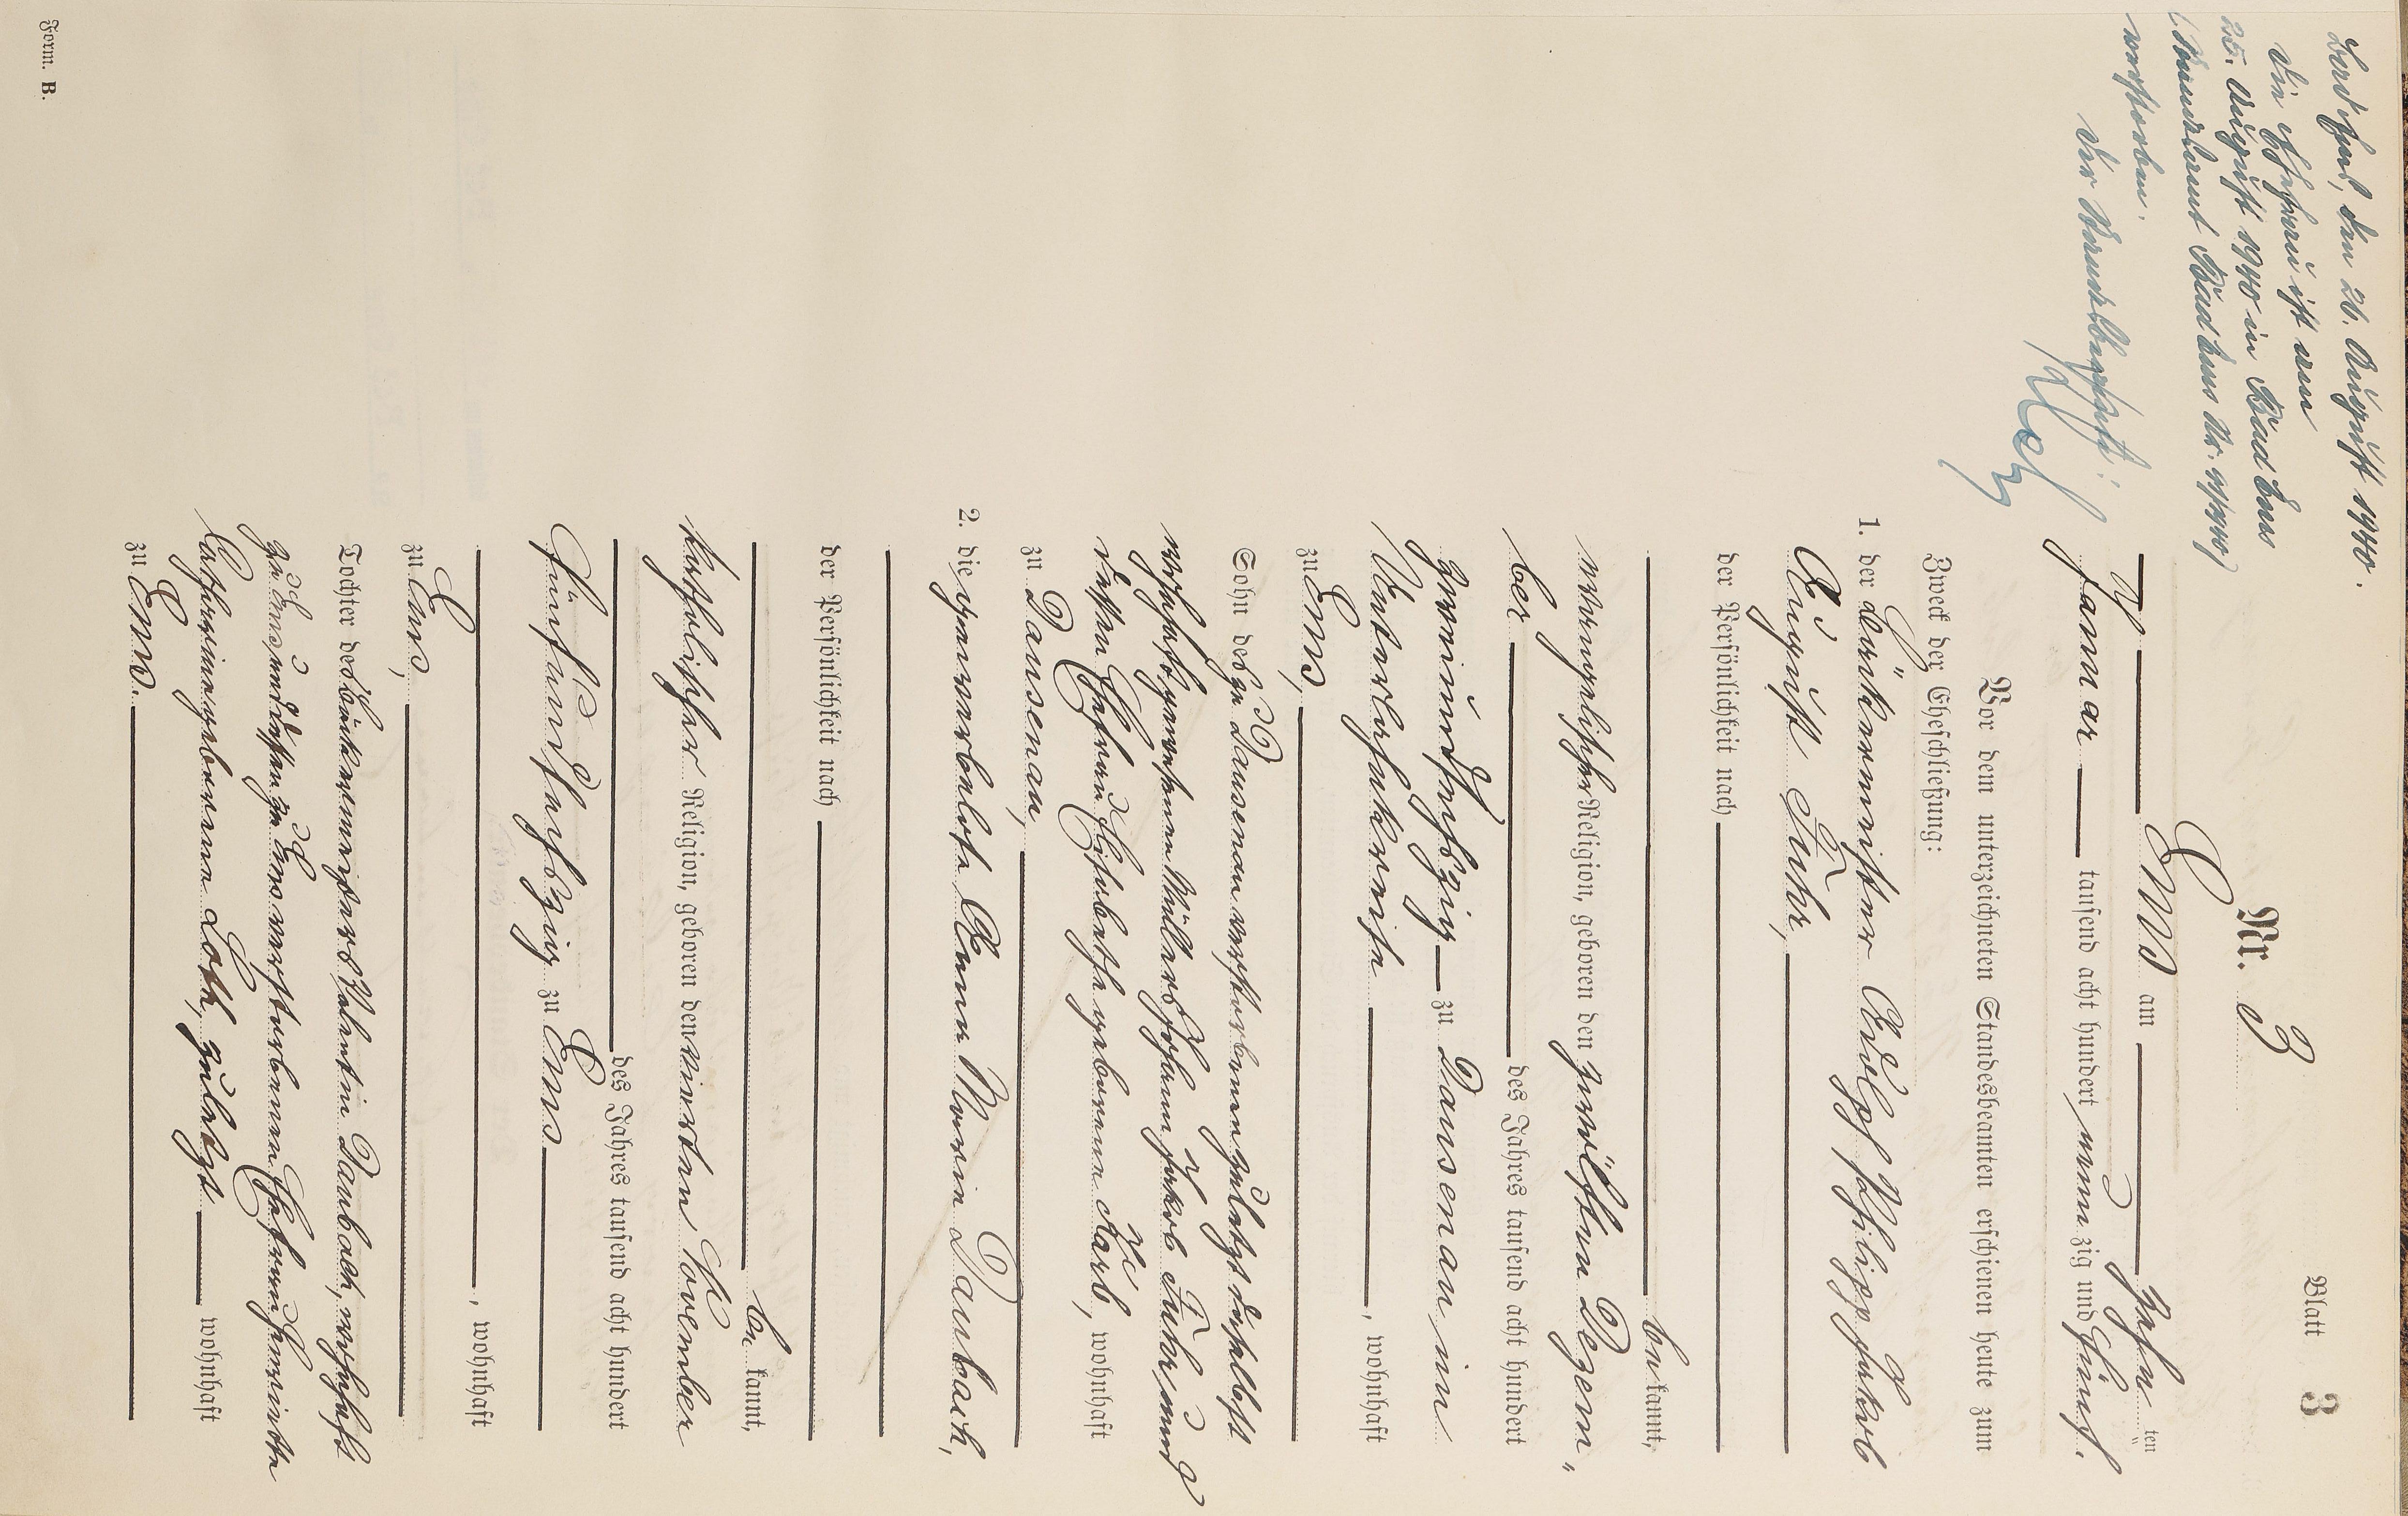 Blatt 3
Nr. 3
Ems am zehn ten
Januar tausend acht hundert neunzig und fünf.
Vor dem unterzeichneten Standesbeamten erschienen heute zum
Zweck der Eheschließung:
1. der Bäckermeister Adolf Philipp Jakob
August Fuhr,
der Persönlichkeit nach
be kannt,
evangelischer Religion, geboren den zwölften Dezem„
ber des Jahres tausend acht hundert
neunundsechszig zu Dausenau im
Unterlahnkreise, wohnhaft
zu Ems,
Sohn des zu Dausenau verstorbenen zuletzt daselbst
wohnhaft gewesenen Müllers Johann Jakob Fuhr und
dessen Ehefrau Elisabethe geborene Karb, wohnhaft
zu Dausenau,
2. die gewerbelose Anna Maria Daubach,
der Persönlichkeit nach
be kannt,
katholischer Religion, geboren den vierten November
des Jahres tausend acht hundert
fünfundsechszig zu Ems
, wohnhaft
zu Ems,
Tochter des Bäckermeisters Valentin Daubach, wohnhaft
zu Ems, und dessen zu Ems verstorbenen Ehefrau
Catharina geborene Loth, zuletzt wohnhaft
zu Ems.
den 26. August 1940.
Die Ehefrau ist am
25. August 1940 in Bad Ems
(Standesamt Bad Ems Nr.
verstorben.
Der Standesbeamte:
Form. B.